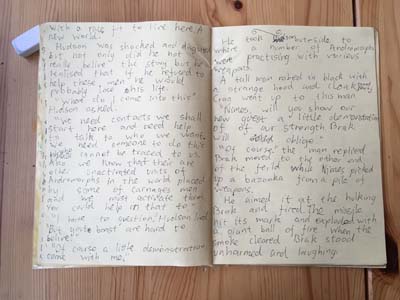 With a race fit to live here A
new world.
Hudson was shocked and disgusted
but not only did he not
really believe the story but he
realised that if he refused to
help these men he would
probably lose his life.
"what do I come into this"
Hudson asked.
"We need contacts we shall
start here and need help
to talk to who we want.
We need someone to do this
cannot be traced to us.
Also we know that there are
other inactivated units of
Andramorphs in the world placed
by some of carnages men
and we must activate them
could help us in that to"
"I have no question, Hudson lied
"But your boast are hard to
believe"
"Of course a little demonstration
come with me,"
He took outside to
where a number of Andramorphs
were practising with various
weapons.
A tall man robed in black with
a strange hood and cloak
Craig went up to this man
"Nimes, will you show our
new guest a little demonstration
of our strength Brak
will oblige"
"Of course" the man replied
Brak moved to the other end
of the field while Nimes picked
up a bazooka from a pile of
weapons.
He aimed it at the hulking
Brak and fired. The missle
hit its mark and exploded with
a giant ball of fire when the
smoke cleared Brak stood
unharmed and laughing.